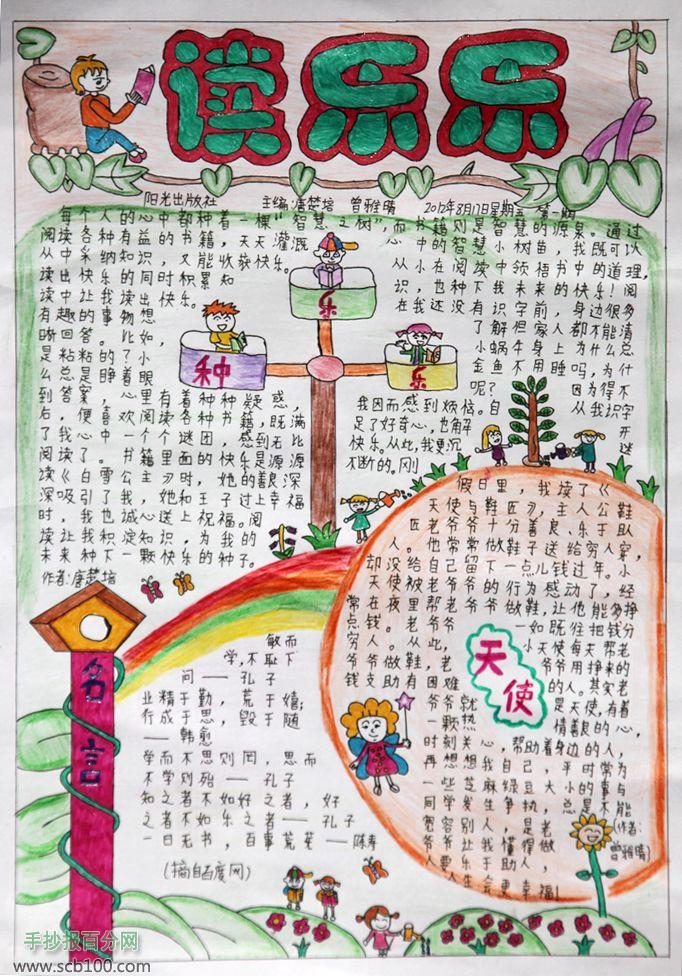 读乐乐
阳光出版社 主编:唐楚培 曾雅晴 2012年8月17日星期五 第一期
每个人的心中都种着一棵"智慧之树",而书籍则是智慧的源泉。通过
阅读各种有益的书籍,天天灌溉心中的智慧小树苗,我既可以
从中采纳知识,又能收获快乐。从小在阅读中领悟书中的道理,
读出快乐的同时积累知识,也种下我未来的快乐!阅
读中让我读出快乐。在我还没有识字前,身边很多
有趣的事物想了解但家人都不能清
晰回答。比如,小蜗牛身上为什么总
是粘粘的?小金鱼不用睡吗,为什
么总是睁着眼呢?因为得不
到答案,心里有着种种疑惑,我因而感到烦恼。自从我识字
后,便喜欢阅读各种书籍,既满足了好奇心,也解开
了我心中一个个谜团,感到无比快乐。从此,我更沉迷
阅读了。书籍里面的快乐是源源不断的,刚
读《白雪公主》时,她的善良深
深吸引了我,她和王子过上幸福
时,我也诚心送上祝福。阅
读让我积淀知识,为我的
未来种下一颗快乐的种子。
作者:唐楚培
乐
种
乐
假日里,我读了《
天使与鞋匠》,主人公鞋
匠老爷爷十分善良、乐于助
人。他常常做鞋子送给穷人穿,
却没给自己留下一点儿钱过年。小
天使被老爷爷的行为感动了,经
常在夜里帮老爷爷做鞋,让他能多挣
点钱。老爷爷一如既往把钱分
穷人。从此,小天使每天帮老
爷爷做鞋,老爷爷用挣来的
钱支助有困难的人。其实老
爷爷就是天使,有着
一颗热情善良的心,
时刻关心,帮助着身边的人,
再想想我自己,平时常为
一些芝麻绿豆大小的事与
同学发生争执,总是不能
宽容别人,是老
爷爷让我懂得做
人要乐于助人,
人生会更幸福!
(作者:
曾雅晴)
天使
名言
敏而
学,不耻下
问——孔子
业精于勤,荒于嬉;
行成于思,毁于随
——韩愈
学而不思则罔,思而
不学则殆——孔子
知之者不如好之者,好
之者不如乐之者——孔子
一日无书,百事荒芜——陈寿
(摘自百度网)
手抄报百分网
www.scb100.com